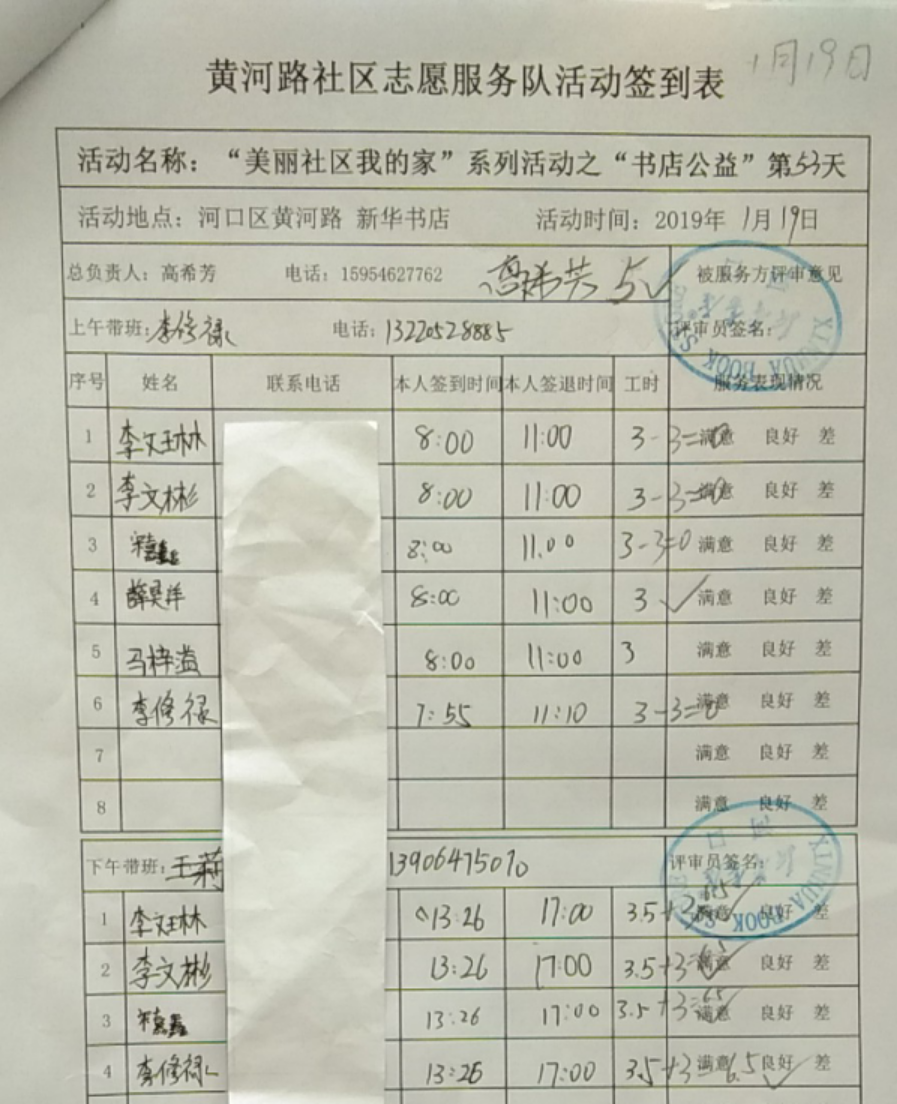 1月19日
黄河路社区志愿服务队活动签到表
活动名称：“美丽社区我的家”系列活动之“书店公益”第53天
活动地点：河口区黄河路 新华书店 活动时间：2019年 1月19日
总负责人：高希芳 电话：15954627762 高希芳 5✓ 被服务方评审意见
上午带班：李修禄 电话：13220528885 评审员签名：
XINHUA BOOK
序号 姓名 联系电话 本人签到时间 本人签退时间 工时 服务表现情况
1 李文琳 8:00 11:00 3-3=0 满意 良好 差
2 李文彬 8:00 11:00 3-3=0 满意 良好 差
3 8:00 11:00 3-3=0 满意 良好 差
4 薛昊洋 8:00 11:00 3 ✓ 满意 良好 差
5 马梓溢 8:00 11:00 3 满意 良好 差
6 李修禄 7:55 11:10 3-3=0 满意 良好 差
7 满意 良好 差
8 满意 良好 差
下午带班：王莉 13906475070 评审员签名：
XINHUA BOOK
1 李文琳 13:26 17:00 3.5+3=6.5 ✓ 满意 良好 差
2 李文彬 13:26 17:00 3.5+3=6.5 ✓ 满意 良好 差
3 13:26 17:00 3.5+3=6.5 ✓ 满意 良好 差
4 李修禄 13:26 17:00 3.5+3=6.5 ✓ 满意 良好 差